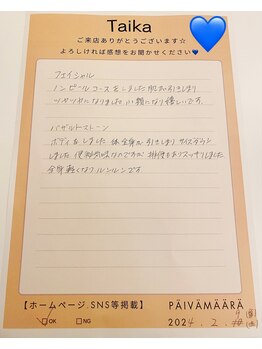 Taika
ご来店ありがとうございます☆
よろしければ感想をお聞かせください♥
フェイシャル
ノンピールコースをしました 肌が引きしまり
ツルツルになりました 小顔になり嬉しいです
バザルトストーン
ボディをしました 体全身が引きしまり サイズダウン
しました 便秘気味なのですが 排便もありスッキリしました
全身軽くなりルンルンです
【ホームページ.SNS等掲載】
OK
NG
PÄIVÄMÄÄRÄ
2024. 2.